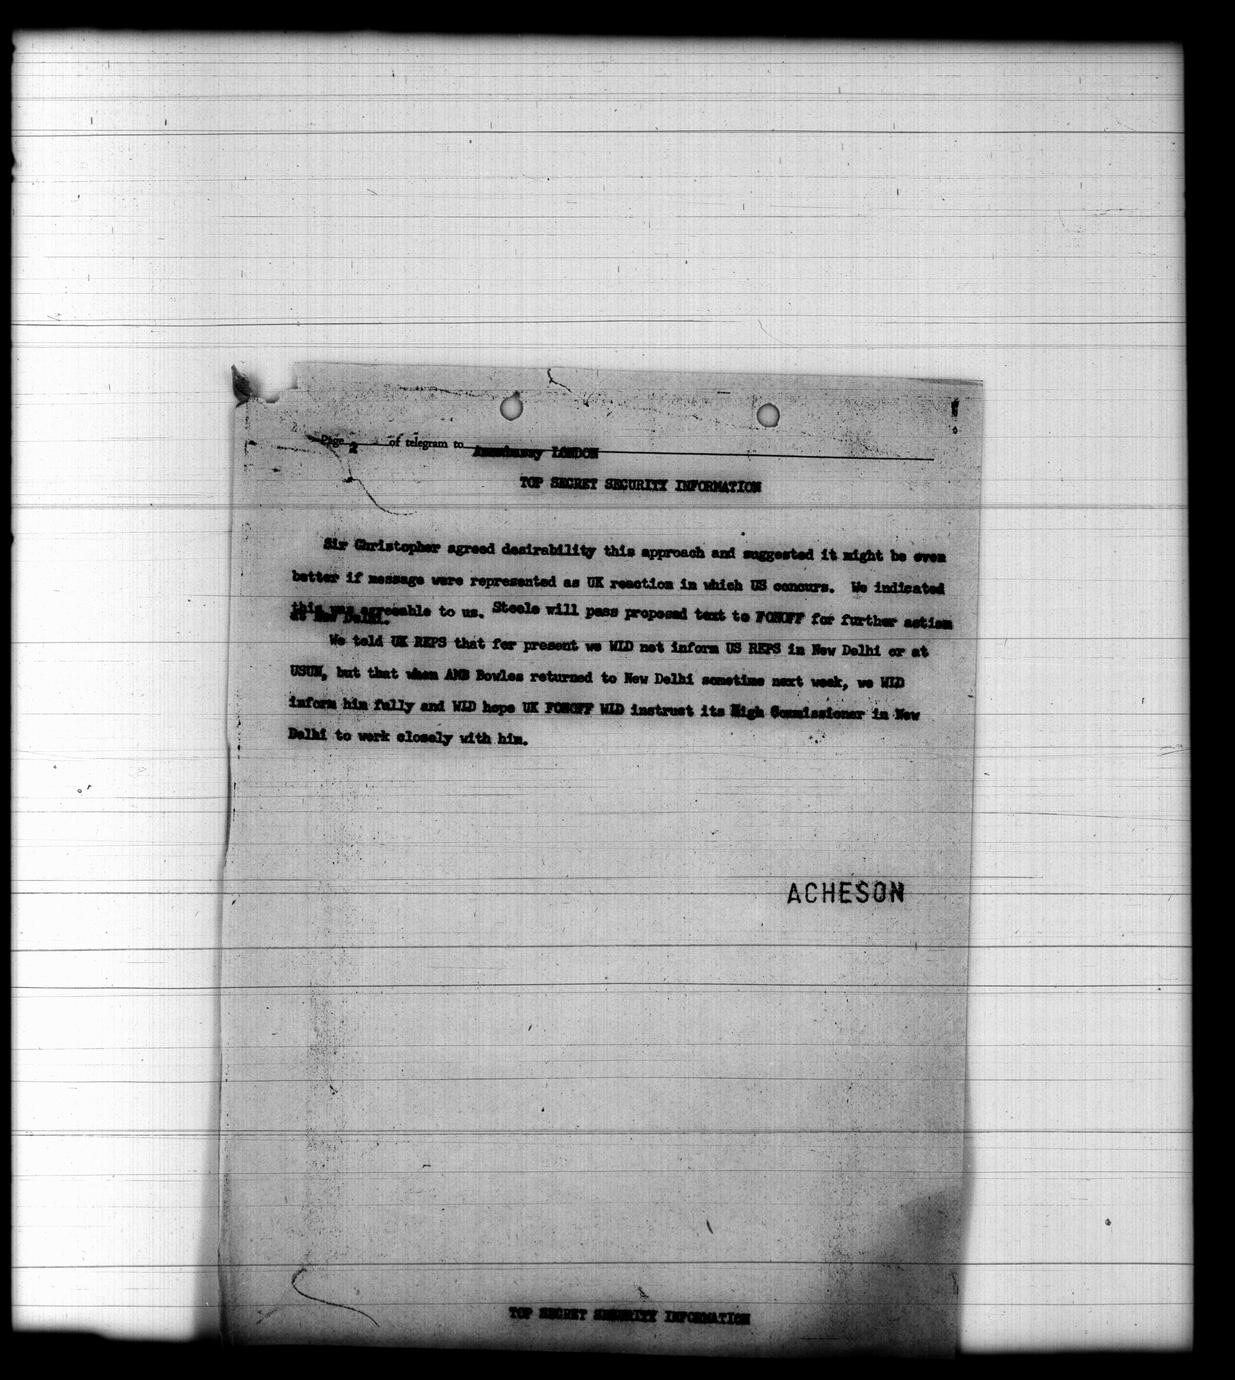 Page 2 of telegram to Amembassy LONDON
TOP SECRET SECURITY INFORMATION
Sir Christopher agreed desirability this approach and suggested it might be even
better if message were represented as UK reaction in which US concurs. We indicated
this was agreeable to us. Steele will pass proposed text to FONOFF for further action
at New Delhi.
We told UK REPS that for present we WLD not inform US REPS in New Delhi or at
USUN, but that when AMB Bowles returned to New Delhi sometime next week, we WLD
inform him fully and WLD hope UK FONOFF WLD instruct its High Commissioner in New
Delhi to work closely with him.
ACHESON
TOP SECRET SECURITY INFORMATION